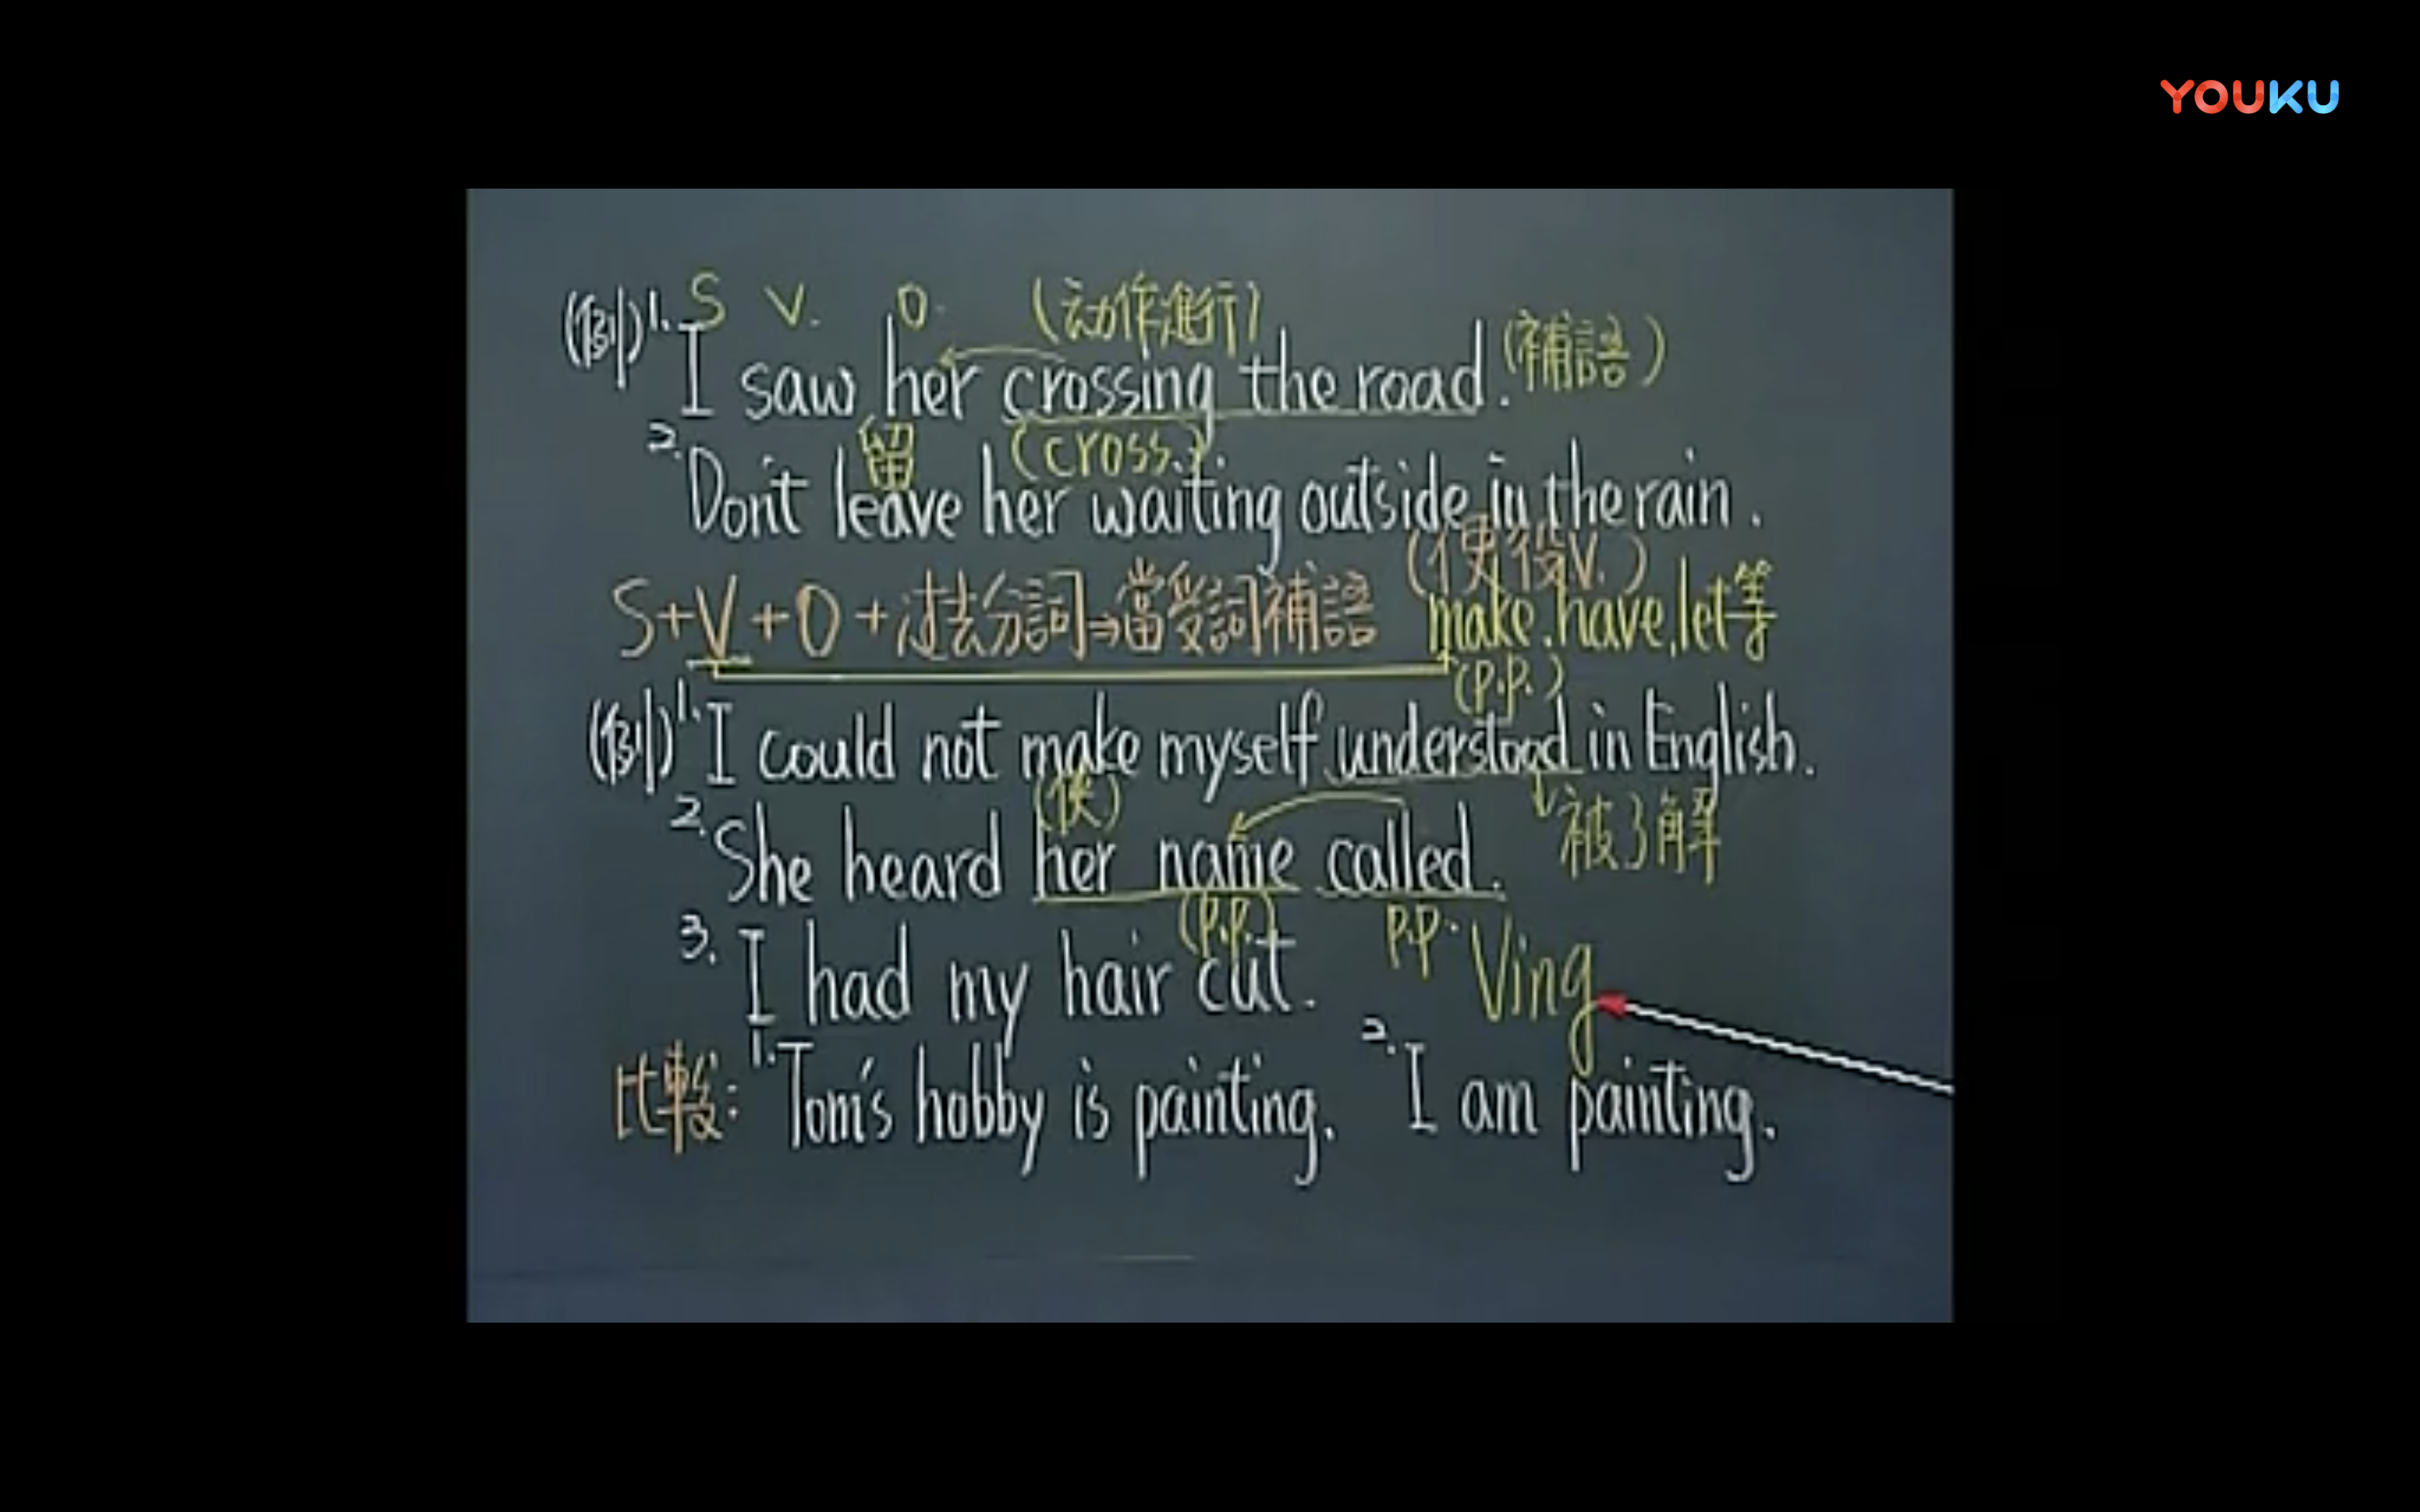 YOUKU
S V. O. (动作進行)
(例) 1. I saw her crossing the road. (補語)
留 (cross.)
2. Don't leave her waiting outside in the rain.
(使役V.)
S+V+O+过去分詞⇒當受詞補語 make, have, let等
(p.p.)
(例) 1. I could not make myself understood in English.
(使) 被了解
2. She heard her name called.
(p.p.) p.p. Ving
3. I had my hair cut.
比較: 1. Tom's hobby is painting. 2. I am painting.